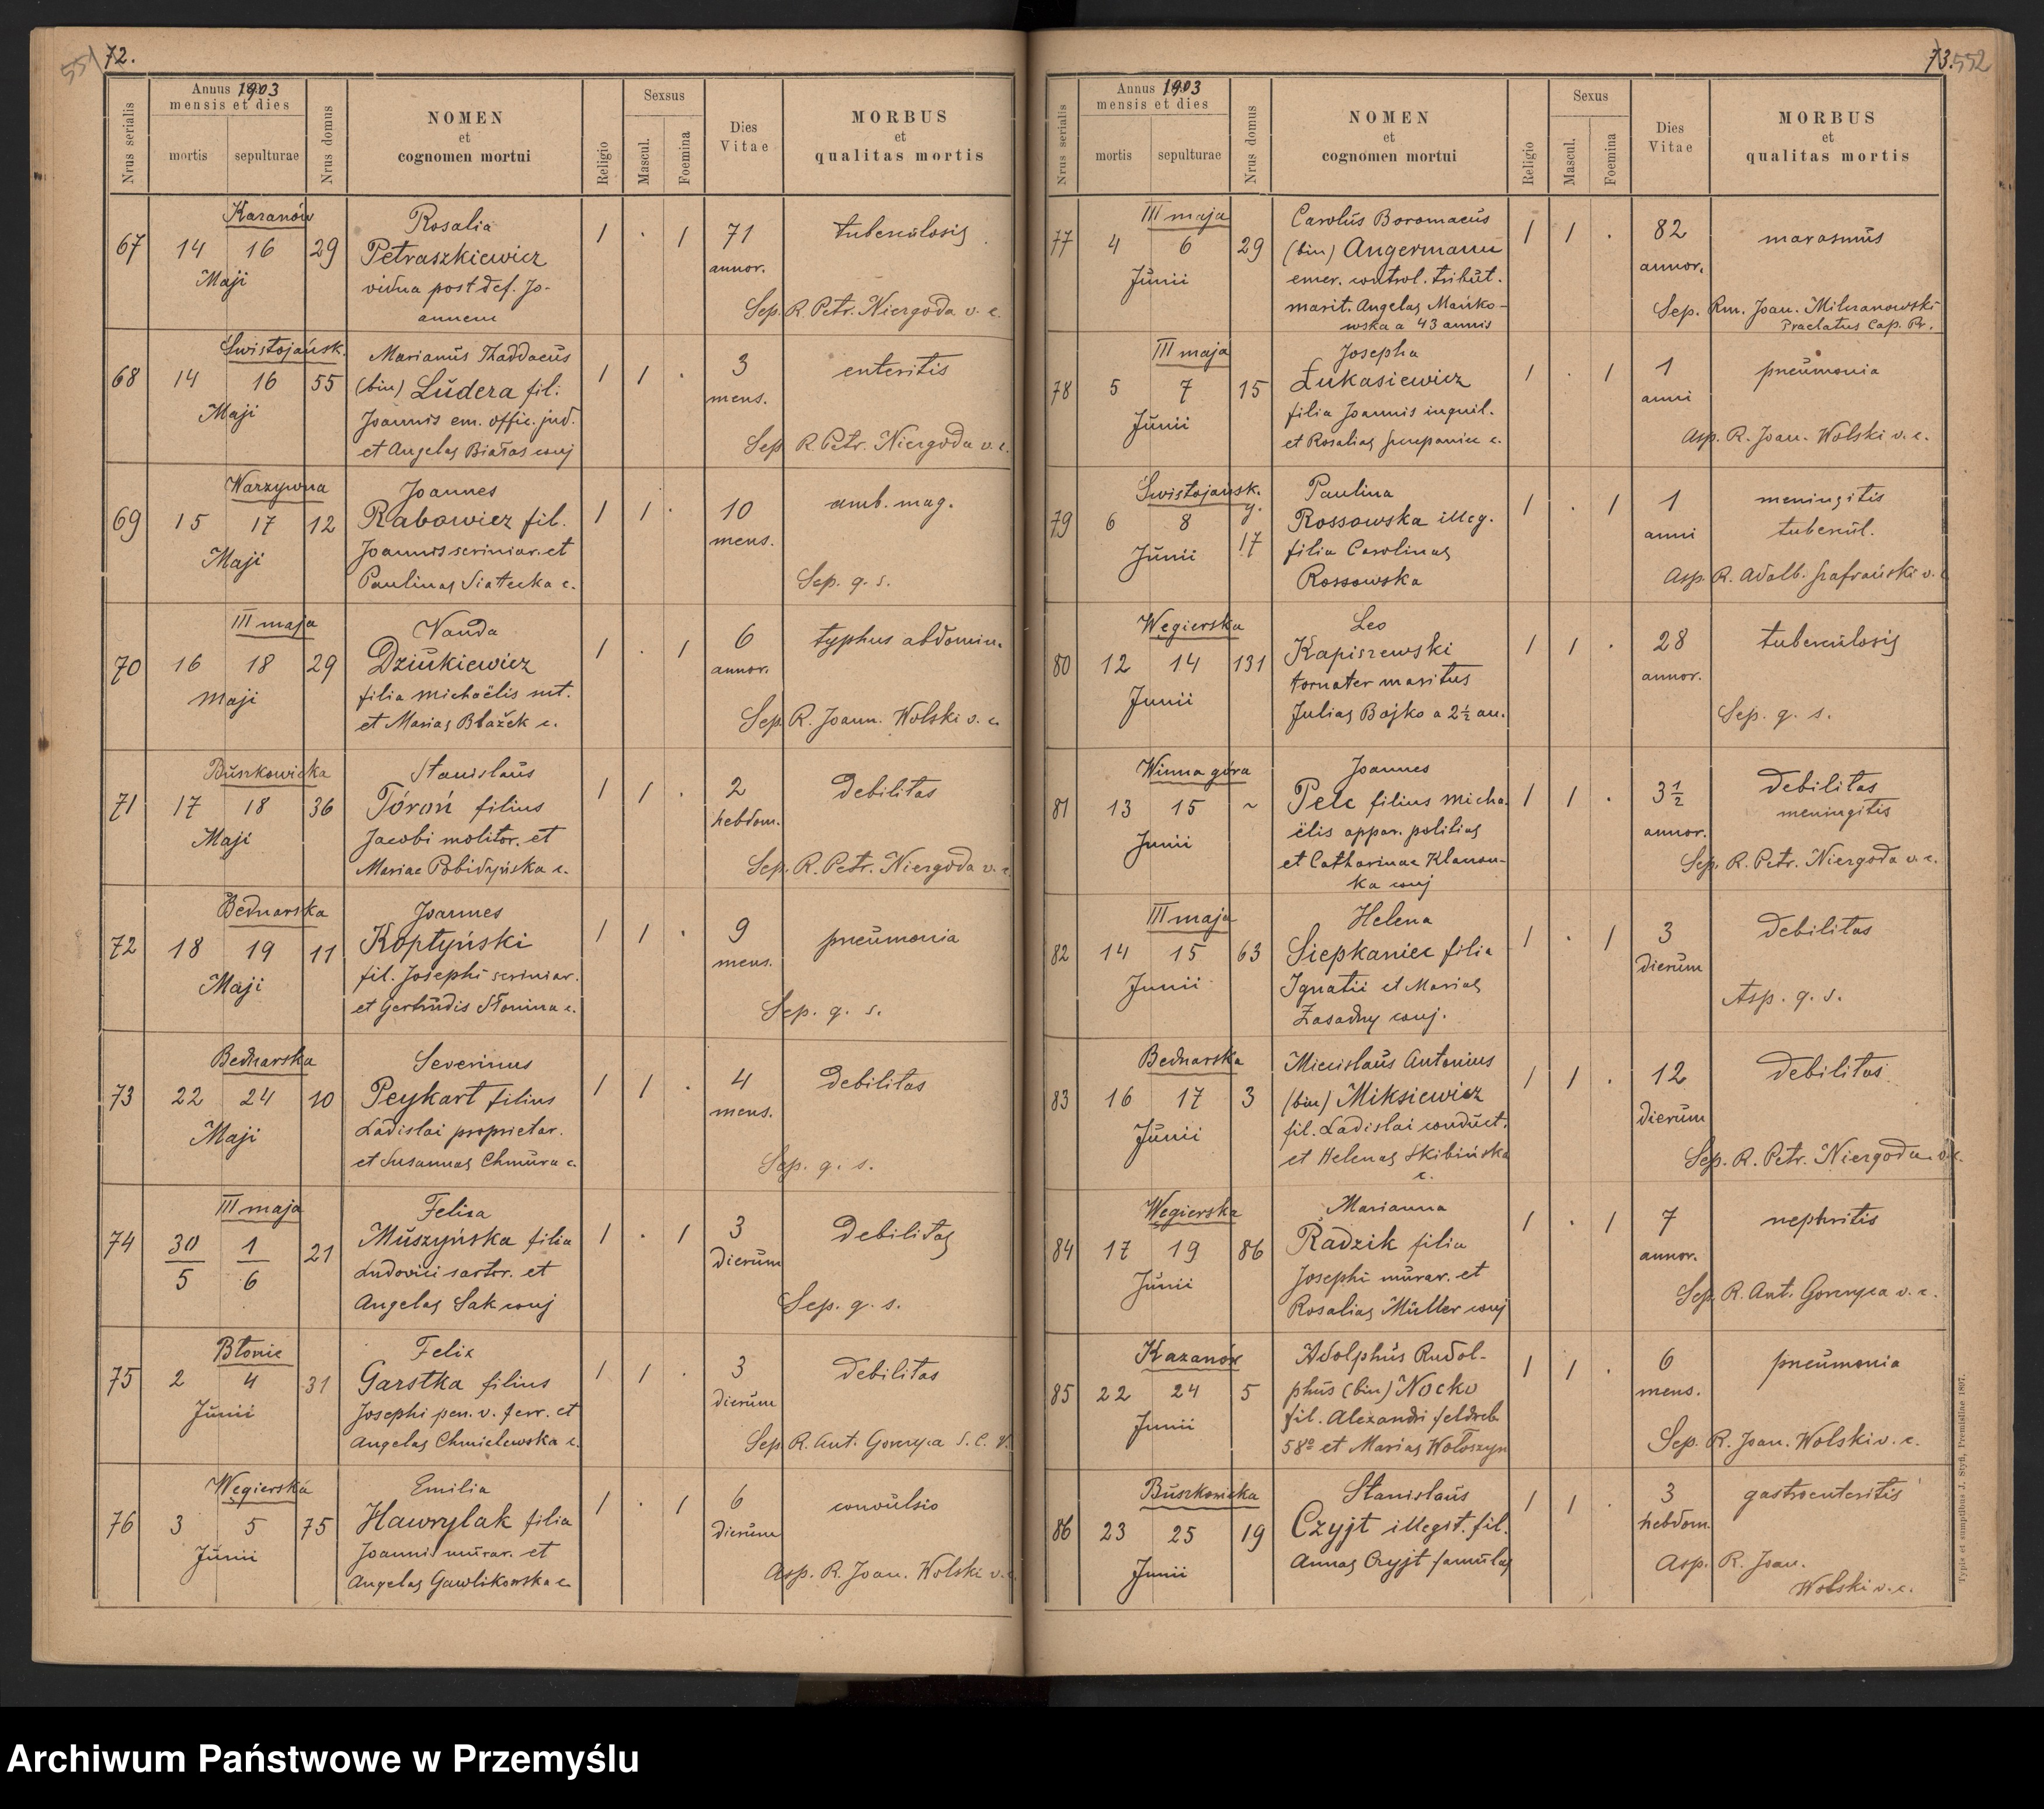 72.
551
Annus 1903
mensis et dies
Nrus serialis
mortis
sepulturae
Nrus domus
NOMEN
et
cognomen mortui
Religio
Sexsus
Mascul.
Foemina
Dies
Vitae
MORBUS
et
qualitas mortis
Kazanów
67 14 16 29
Maji
Rosalia
Petraszkiewicz
vidua post def. Jo-
annem
1 . 1
71
annor.
tuberculosis
Sep. R. Petr. Niergoda v. c.
Swistojańsk.
68 14 16 55
Maji
Marianus Thaddaeus
(bin) Ludera fil.
Joannis em. offic. jud.
et Angelae Białas conj
1 1 .
3
mens.
enteritis
Sep R. Petr. Niergoda v. c.
Warzywna
69 15 17 12
Maji
Joannes
Rabowicz fil.
Joannis scriniar. et
Paulinae Siatecka c.
1 1 .
10
mens.
amb. mag.
Sep. q. s.
III maja
70 16 18 29
Maji
Vanda
Dziukiewicz
filia Michaëlis mt.
et Mariae Blažek c.
1 . 1
6
annor.
typhus abdomin.
Sep R. Joann. Wolski v. c.
Buszkowicka
71 17 18 36
Maji
Stanislaus
Tóroń filius
Jacobi molitor. et
Mariae Pobidyńska c.
1 1 .
2
hebdom.
debilitas
Sep. R. Petr. Niergoda v. c.
Bednarska
72 18 19 11
Maji
Joannes
Koptyński
fil. Josephi scriniar.
et Gertrudis Słonina c.
1 1 .
9
mens.
pneumonia
Sep. q. s.
Bednarska
73 22 24 10
Maji
Severinus
Peykart filius
Ladislai proprietar.
et Susannae Chmura c.
1 1 .
4
mens.
debilitas
Sep. q. s.
III maja
74 30/5 1/6 21
Felixa
Muszyńska filia
Ludovici sartor. et
Angelae Sak conj
1 . 1
3
dierum
debilitas
Sep. q. s.
Błonie
75 2 4 31
Junii
Felix
Garstka filius
Josephi pen. v. ferr. et
Angelae Chmielewska c.
1 1 .
3
dierum
debilitas
Sep R. Ant. Gorczyca S. C. V.
Węgierska
76 3 5 75
Junii
Emilia
Hawrylak filia
Joannis murar. et
Angelae Gawlikowska c.
1 . 1
6
dierum
convulsio
Asp. R. Joan. Wolski v. c.
73.
552
Annus 1903
mensis et dies
Nrus serialis
mortis
sepulturae
Nrus domus
NOMEN
et
cognomen mortui
Religio
Sexus
Mascul.
Foemina
Dies
Vitae
MORBUS
et
qualitas mortis
III maja
77 4 6 29
Junii
Carolus Boromaeus
(bin) Angermann
emer. control. tribut.
marit. Angelae Mańko-
wska a 43 annis
1 1 .
82
annor.
marasmus
Sep. Rm. Joan. Milczanowski
Praelatus Cap. Pr.
III maja
78 5 7 15
Junii
Josepha
Łukasiewicz
filia Joannis inquil.
et Rosaliae Szczepaniec c.
1 . 1
1
anni
pneumonia
Asp. R. Joan. Wolski v. c.
Swistojańsk.
79 6 8 g. 17
Junii
Paulina
Rossowska illeg.
filia Carolinae
Rossowska
1 . 1
1
anni
meningitis
tubercul.
Asp. R. Adalb. Szafrański v. c.
Węgierska
80 12 14 131
Junii
Leo
Kapiszewski
tornater maritus
Juliae Bojko a 2½ an.
1 1 .
28
annor.
tuberculosis
Sep. q. s.
Winna góra
81 13 15 ~
Junii
Joannes
Pelc filius Micha-
ëlis appar. politiae
et Catharinae Klanow-
ka conj
1 1 .
3½
annor.
debilitas
meningitis
Sep. R. Petr. Niergoda v. c.
III maja
82 14 15 63
Junii
Helena
Siepkaniec filia
Ignatii et Mariae
Zasadny conj.
1 . 1
3
dierum
debilitas
Asp. q. s.
Bednarska
83 16 17 3
Junii
Miecislaus Antonius
(bin) Miksiewicz
fil. Ladislai conduct.
et Helenae Skibińska
c.
1 1 .
12
dierum
debilitas
Sep. R. Petr. Niergoda v. c.
Węgierska
84 17 19 86
Junii
Marianna
Radzik filia
Josephi murar. et
Rosaliae Müller conj
1 . 1
7
annor.
nephritis
Sep R. Ant. Gorczyca v. c.
Kazanów
85 22 24 5
Junii
Adolphus Rudol-
phus (bin) Nocko
fil. Alexandri feldweb.
58º et Mariae Wołoszyn
1 1 .
6
mens.
pneumonia
Sep. R. Joan. Wolski v. c.
Buszkowicka
86 23 25 19
Junii
Stanislaus
Czyjt illegit. fil.
Annae Czyjt famulae
1 1 .
3
hebdom.
gastroenteritis
Asp. R. Joan.
Wolski v. c.
Typis et sumptibus J. Styfi, Premisliae 1897.
Archiwum Państwowe w Przemyślu